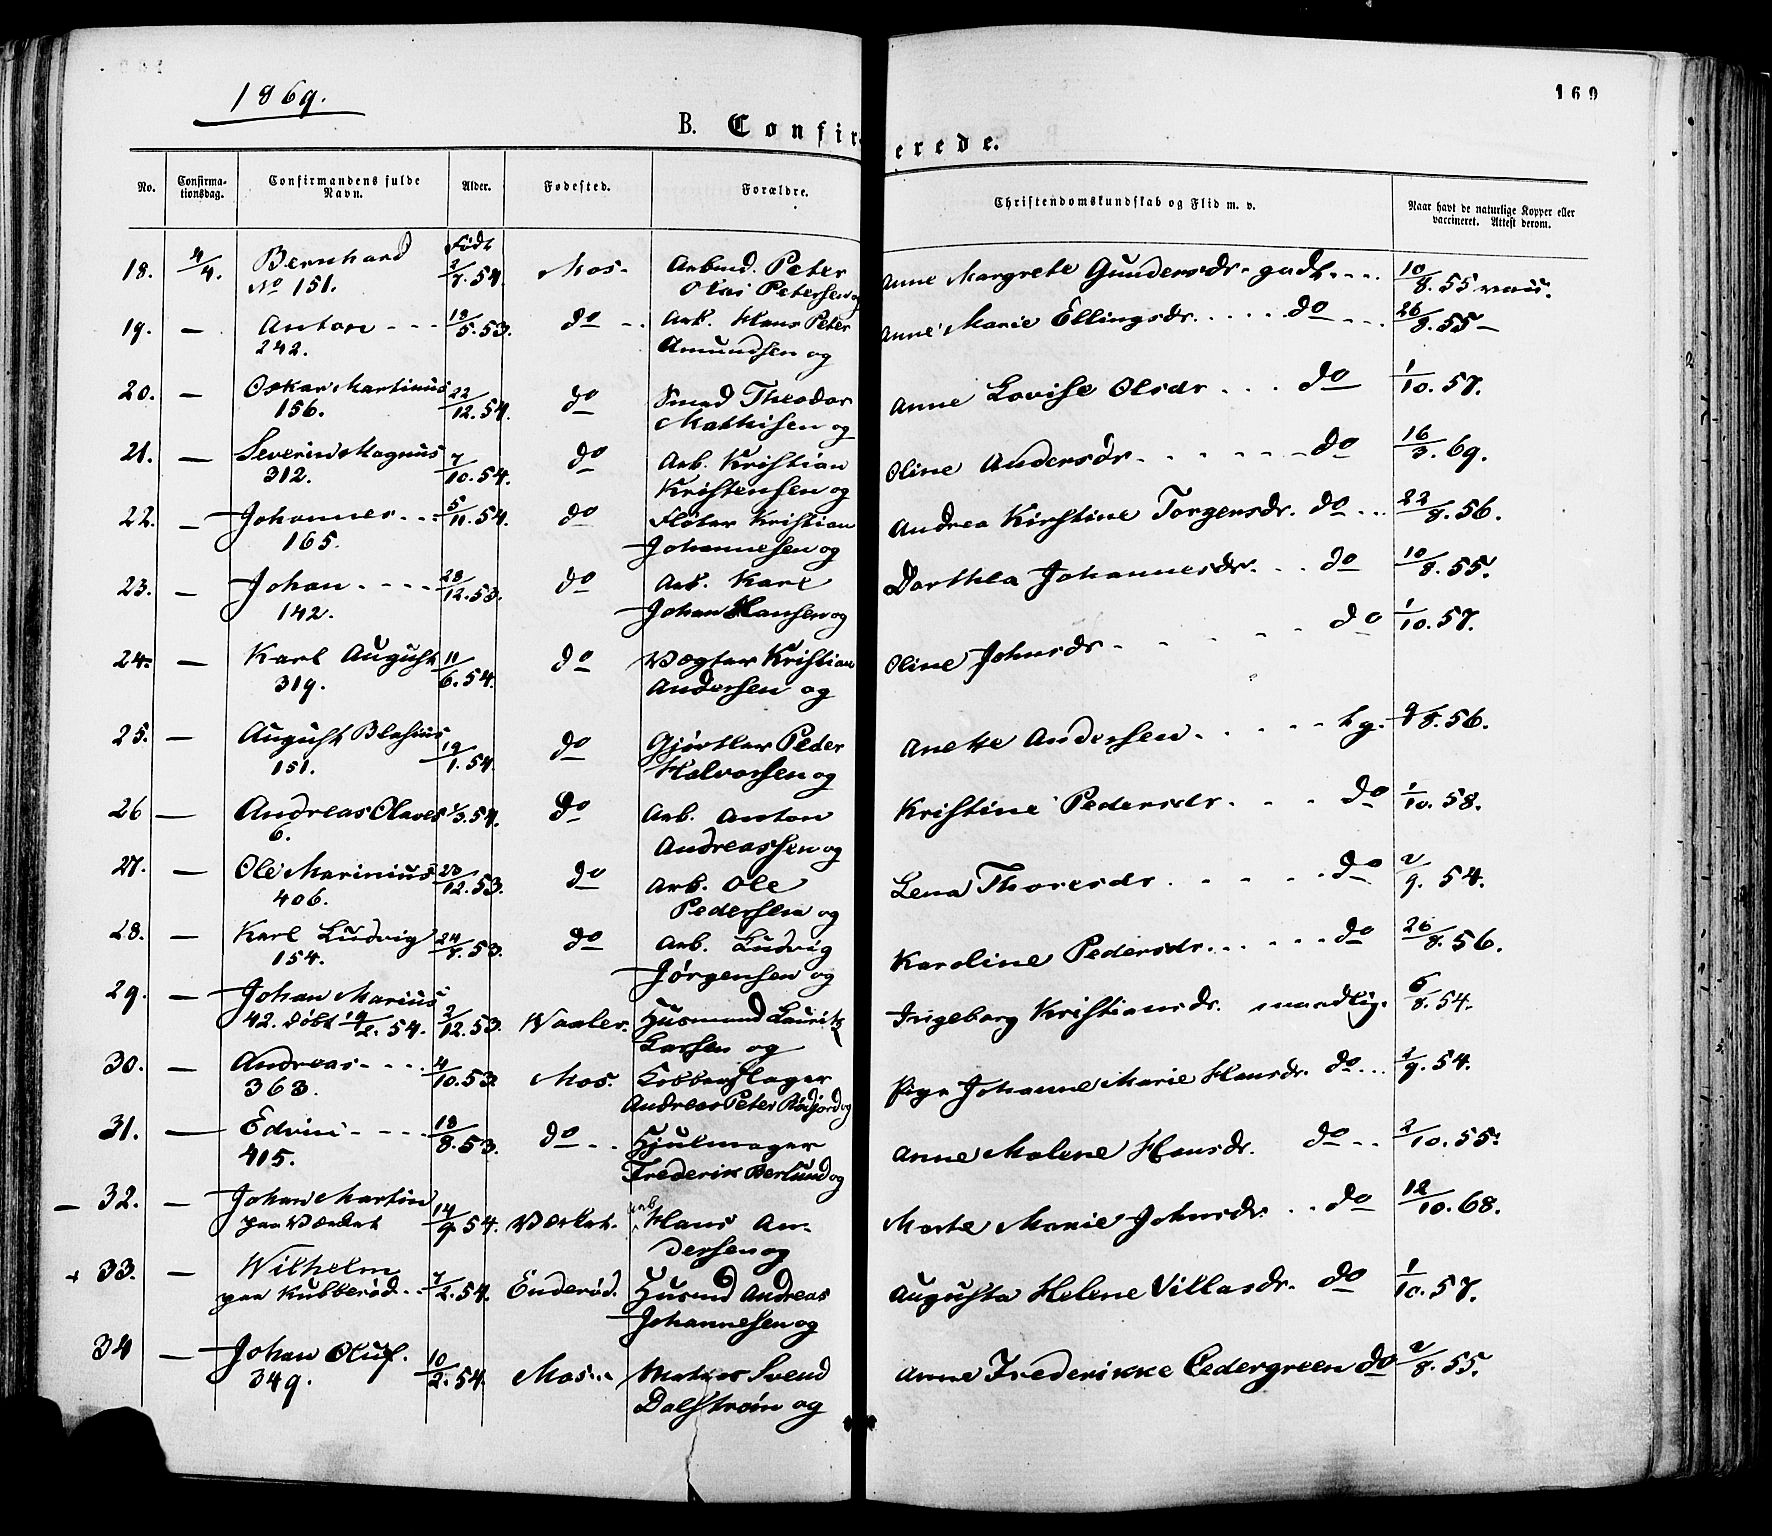 1869.
169
B. Confir erede.
No. Confirma-tionsdag. Confirmandens fulde Navn. Alder. Fødested. Forældre. Christendomskundskab og Flid m. v. Naar havt de naturlige Kopper eller vaccineret. Attest derom.
18. 4/4. Bernhard Født 2/7.54. Mos. Arbmd. Peter Anne Margrete Gundersdr. godt 10/8.55
No 151. Olai Petersen og
19. — Anton 18/5.53. do Arb. Hans Peter Anne Marie Ellingsdr. do 26/8.55 —
242. Amundsen og
20. — Oskar Martinus 22/12.54. do Smed Theodor Anne Lovise Olsdr. do 1/10.57.
156. Mathisen og
21. — Severin Magnus 7/10.54. do Arb. Kristian Oline Andersdr. do 16/3.69.
312. Kristensen og
22. — Johannes 5/11.54. do Fløter Kristian Andrea Kirstine Torgersdr. do 22/8.56.
165. Johannesen og
23. — Johan 28/12.53. do Arb. Karl Dorthea Johannesdr. do 10/8.55.
142. Johan Hansen og
24. — Karl August 11/6.54. do Vægter Kristian Oline Johnsdr. do 1/10.57.
319. Andersen og
25. — August Blasius 19/1.54. do Gjørtler Peder Anette Andersen hg. 9/8.56.
151. Halvorsen og
26 — Andreas Olaves 1/3.54. do Arb. Anton Kristine Pedersdr. do 1/10.58.
6. Andreassen og
27. — Ole Marinius 23/12.53. do Arb. Ole Lena Thoresdr. do 2/9.54.
406. Pedersen og
28. — Karl Ludvig 24/8.53. do Arb. Ludvig Karoline Pedersdr. do 26/8.56.
154. Jørgensen og
29. — Johan Marius 2/12.53. Waaler. Husmand Lauritz Ingeborg Kristiansdr. maadlig. 6/8.54.
42. døbt 19/2.54. Larsen og
30. — Andreas 4/10.53. Mos. Kobberslager Pige Johanne Marie Hansdr. do 2/9.54.
363. Andreas Peter Rødfjord og
31. — Edvin 18/8.53. do Hjulmager Anne Malene Hansdr. do 2/10.55.
415. Frederik Berlund og
— 32. — Johan Martin 14/9.54. Værket. Arb. Hans An- Marte Marie Johnsdr. do 12/10.68.
paa Værket dersen og
+ 33. — Wilhelm 7/2.54. Enderød. Husmd Andreas Augusta Helene Villasdr. do 1/10.57.
paa Kubberød Johannesen og
34 — Johan Oluf. 10/2.54. Mos Matros Svend Anne Frederikke Cedergreen do 2/8.55.
349. Dalstrøm og